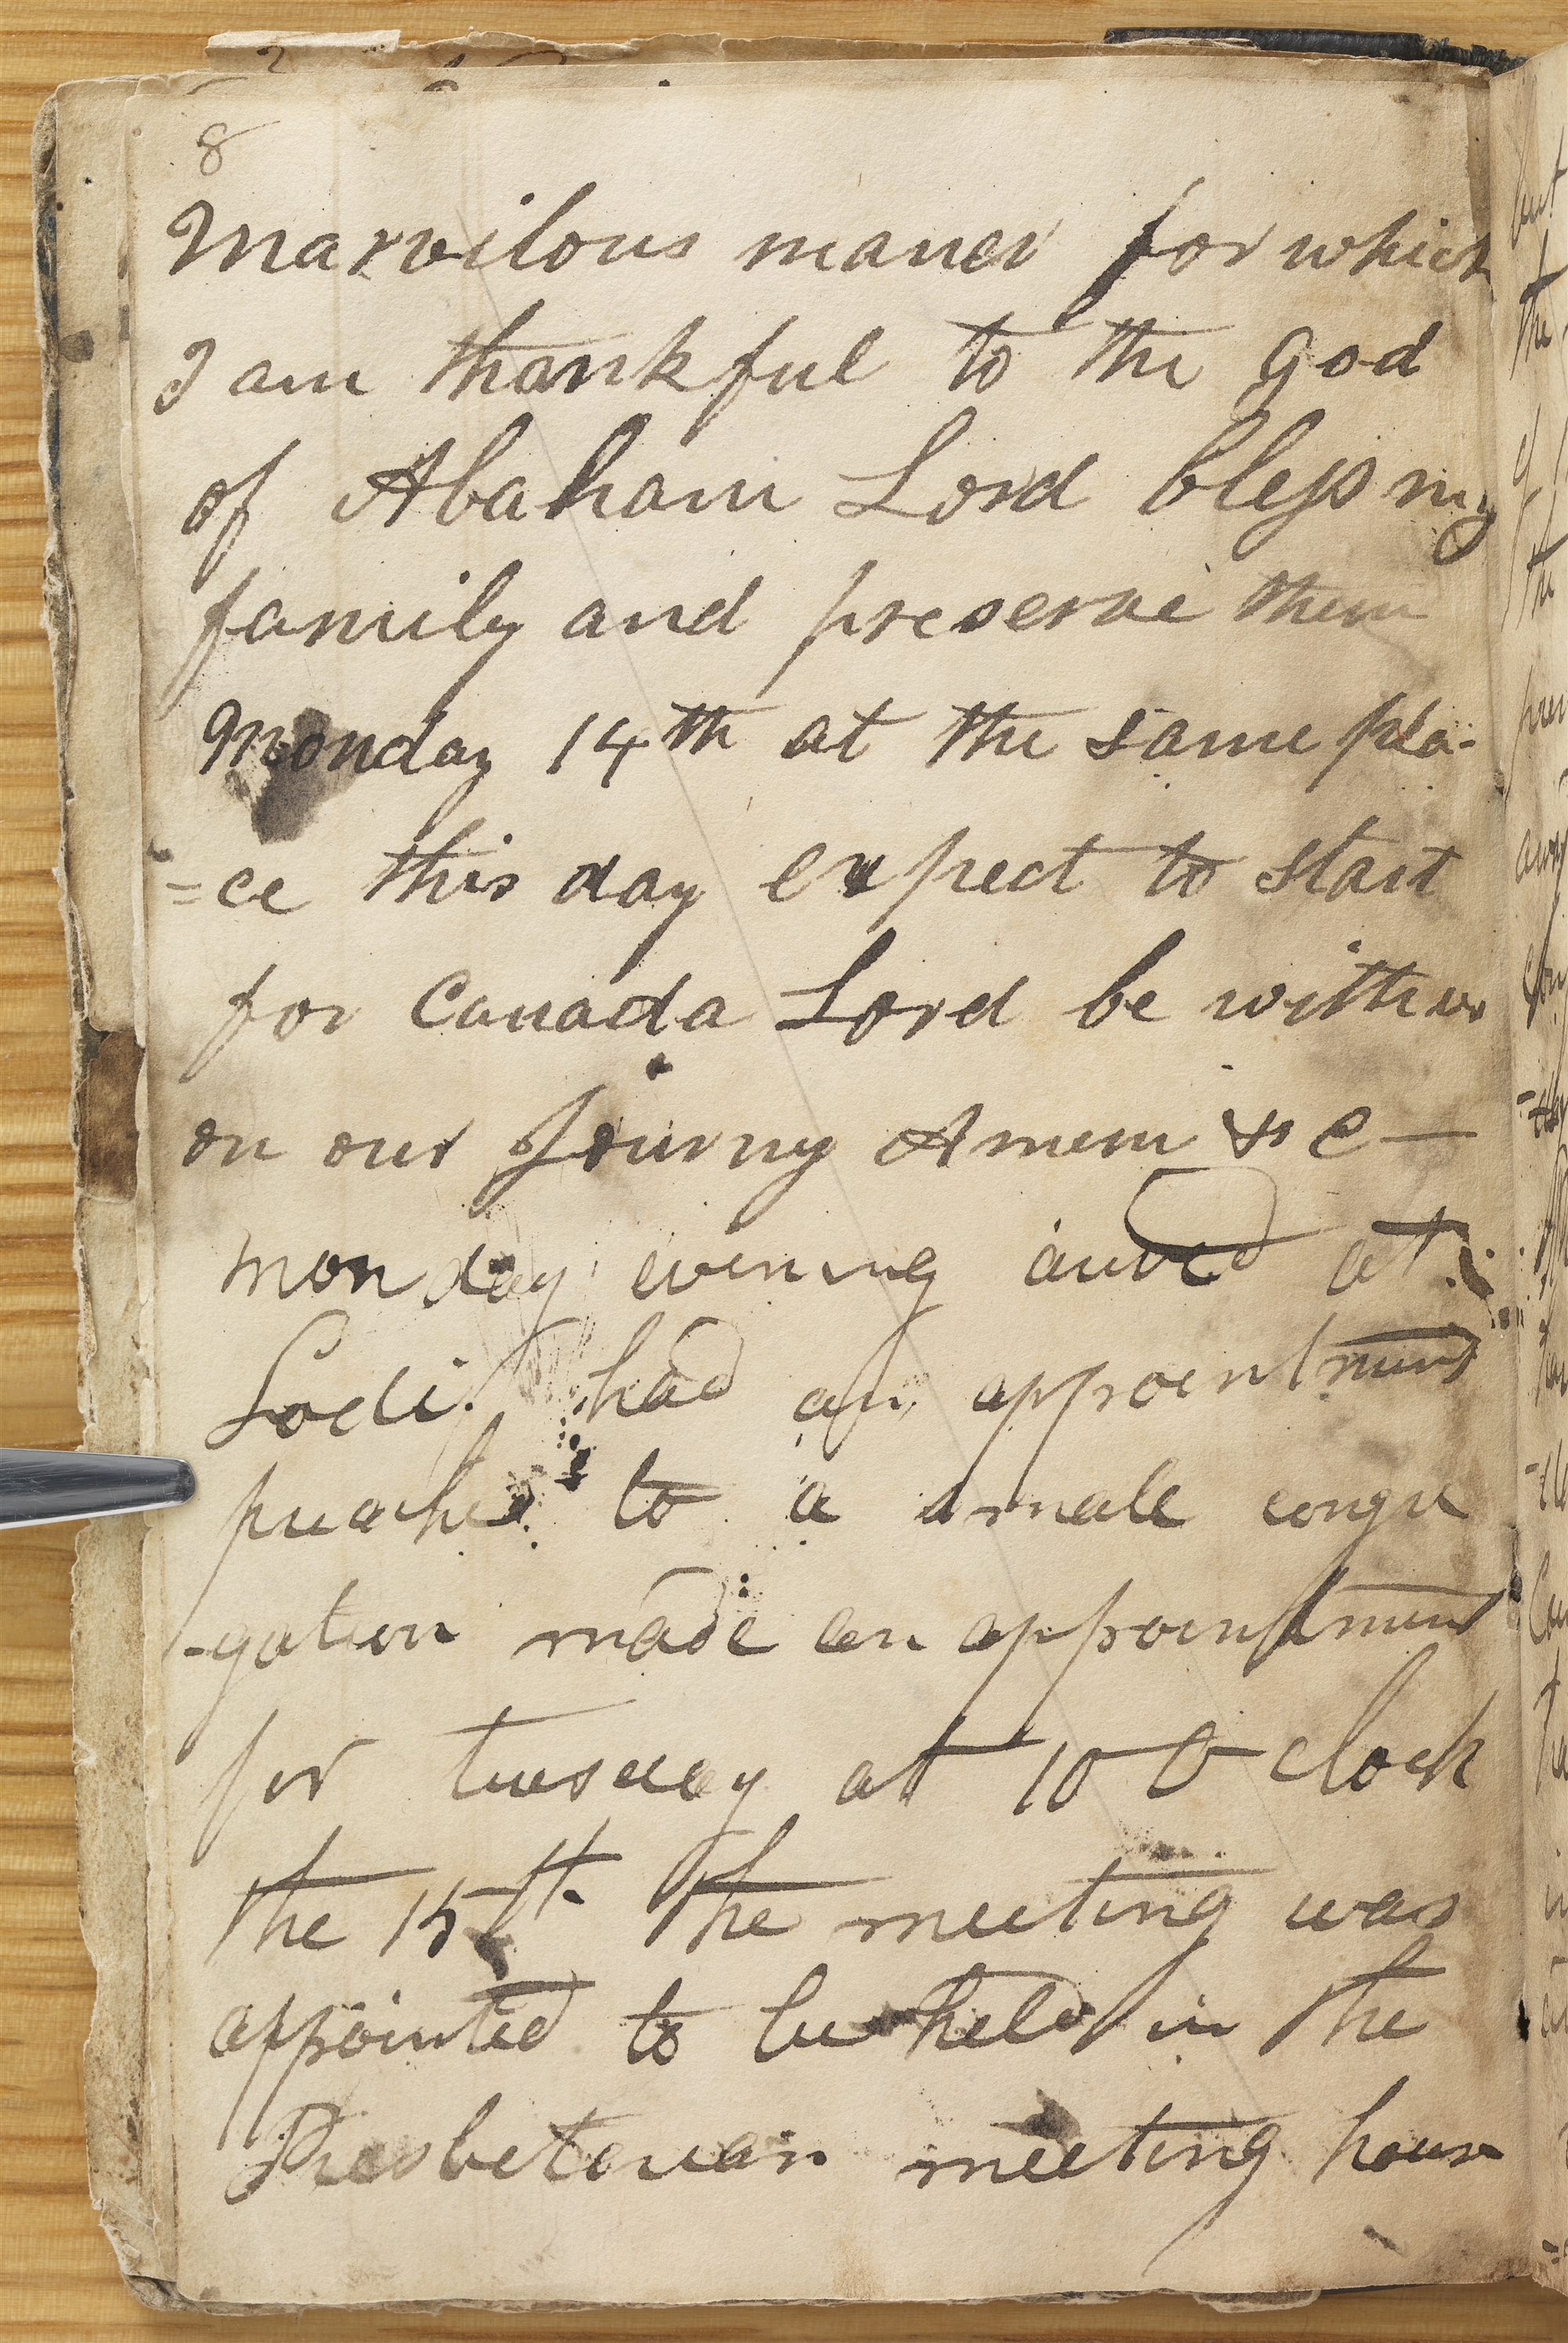 8
Marvilous maner for which
I am thankful to the God
of Abaham Lord bless my
family and preserve them
Monday 14th at the same pla-
=ce this day expect to start
for Canada Lord be with us
on our Journy Amem &c—
monday evening arived at
Lodi had an appointment
preached to a small congre
-gation made an appointment
for tuesday at 10 O clock
the 15th The meeting was
appointed to be held in the
Presbeterian meeting house